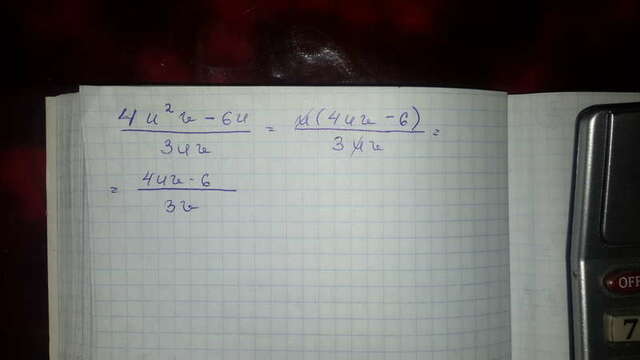 4u²v - 6u / 3uv = u(4uv - 6) / 3uv =
= 4uv - 6 / 3v
OFF
7